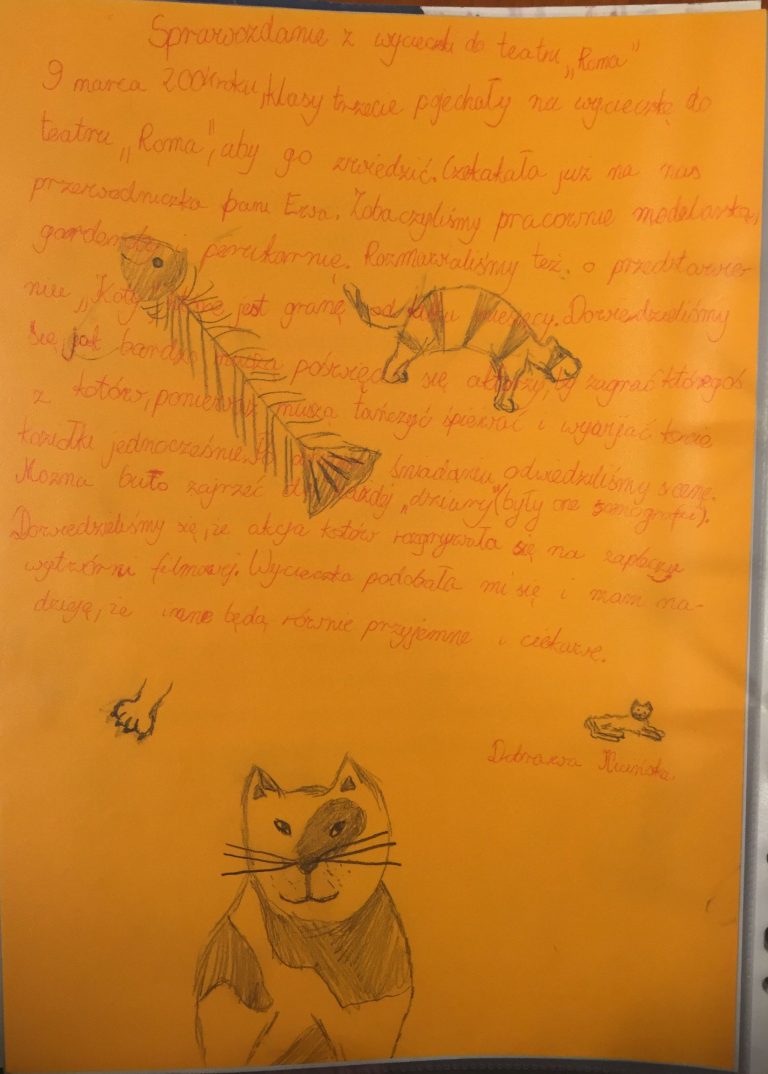 Sprawozdanie z wycieczki do teatru „Roma"
9 marca 2004 roku, klasy trzecie pojechały na wycieczkę do
teatru „Roma", aby go zwiedzić. Czekakała już na nas
przewodniczka pani Ewa. Zobaczyliśmy pracownie modelarską,
garderobę i perukarnię. Rozmawialiśmy też o przedstawie-
niu „Koty", które jest grane od kilku miesięcy. Dowiedzieliśmy
się, jak bardzo muszą poświęcać się aktorzy, by zagrać któregoś
z kotów, ponieważ muszą tańczyć śpiewać i wywijać kocie
koziołki jednocześnie. Po śniadaniu, odwiedziliśmy scenę.
Mozna buło zajrzeć do każdej „dziury" (były one scenografii).
Dowiedzieliśmy się, że akcja kotów rozgrywała się na zapleczu
wytwórni filmowej. Wycieczka podobała mi się i mam na-
dzieję, że inne będą równie przyjemne i ciekawe.
Dobrawa